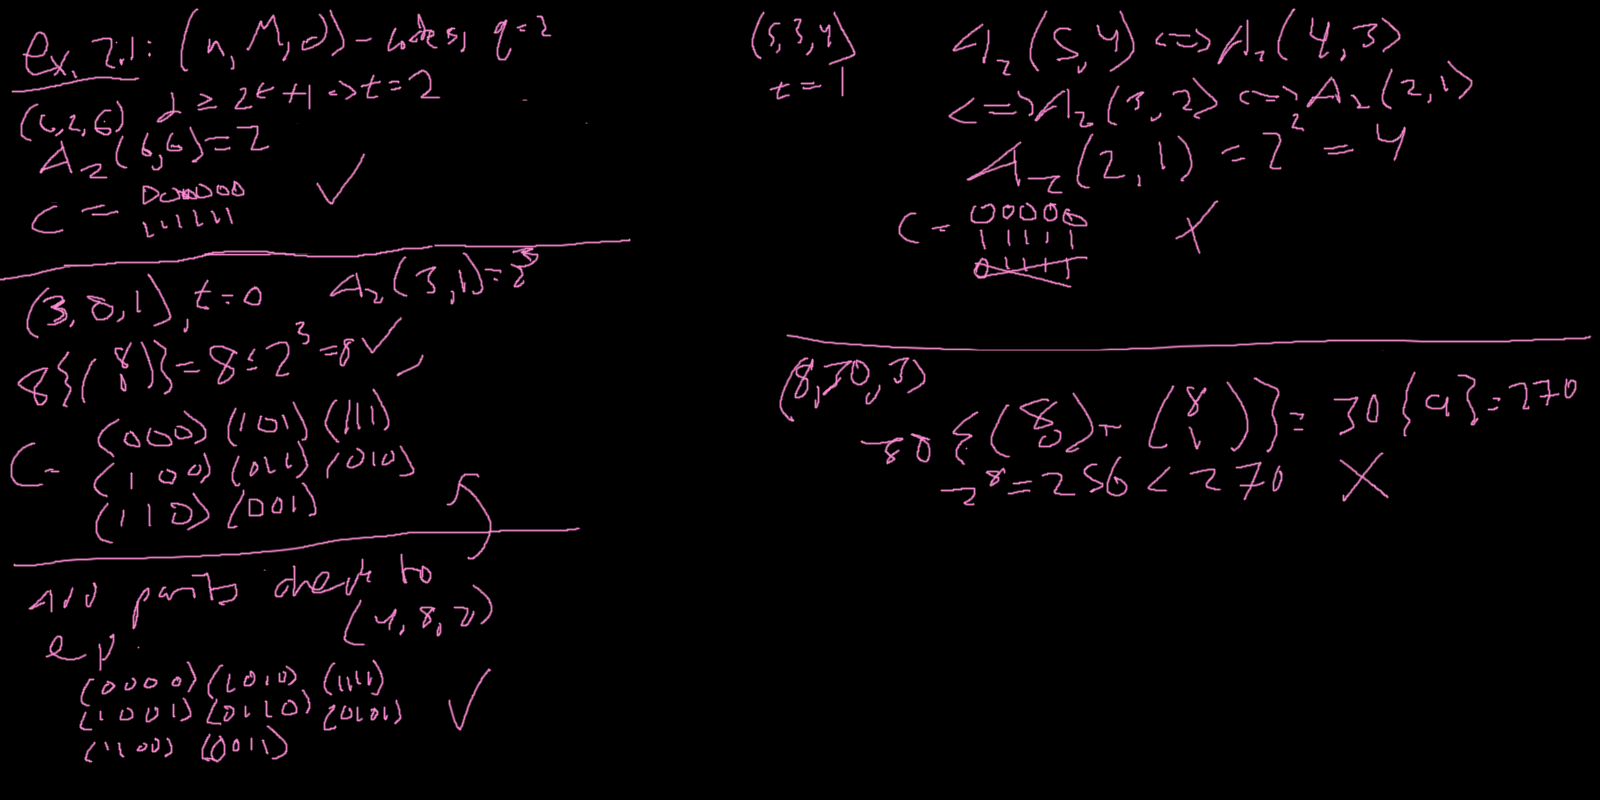 ex. 2.1: (n, M, d) - codes, q=2
(6,2,6) d ≥ 2t+1 => t=2
A₂(6,6)=2
C = 000000 ✓
111111
(3,8,1), t=0 A₂(3,1)=2³
8{(8 0)} = 8 ≤ 2³ = 8 ✓
C = (000) (101) (111)
(100) (011) (010)
(110) (001)
Add parity check to
ex. (4,8,2)
(0000) (1010) (1111)
(1001) (0110) (0101) ✓
(1100) (0011)
(5,3,4) A₂(5,4) <=> A₂(4,3)
t=1 <=> A₂(3,2) <=> A₂(2,1)
A₂(2,1) = 2² = 4
C = 00000 X
11111
01111
(8,30,3)
30{(8 0)+(8 1)} = 30{9} = 270
2⁸ = 256 < 270 X